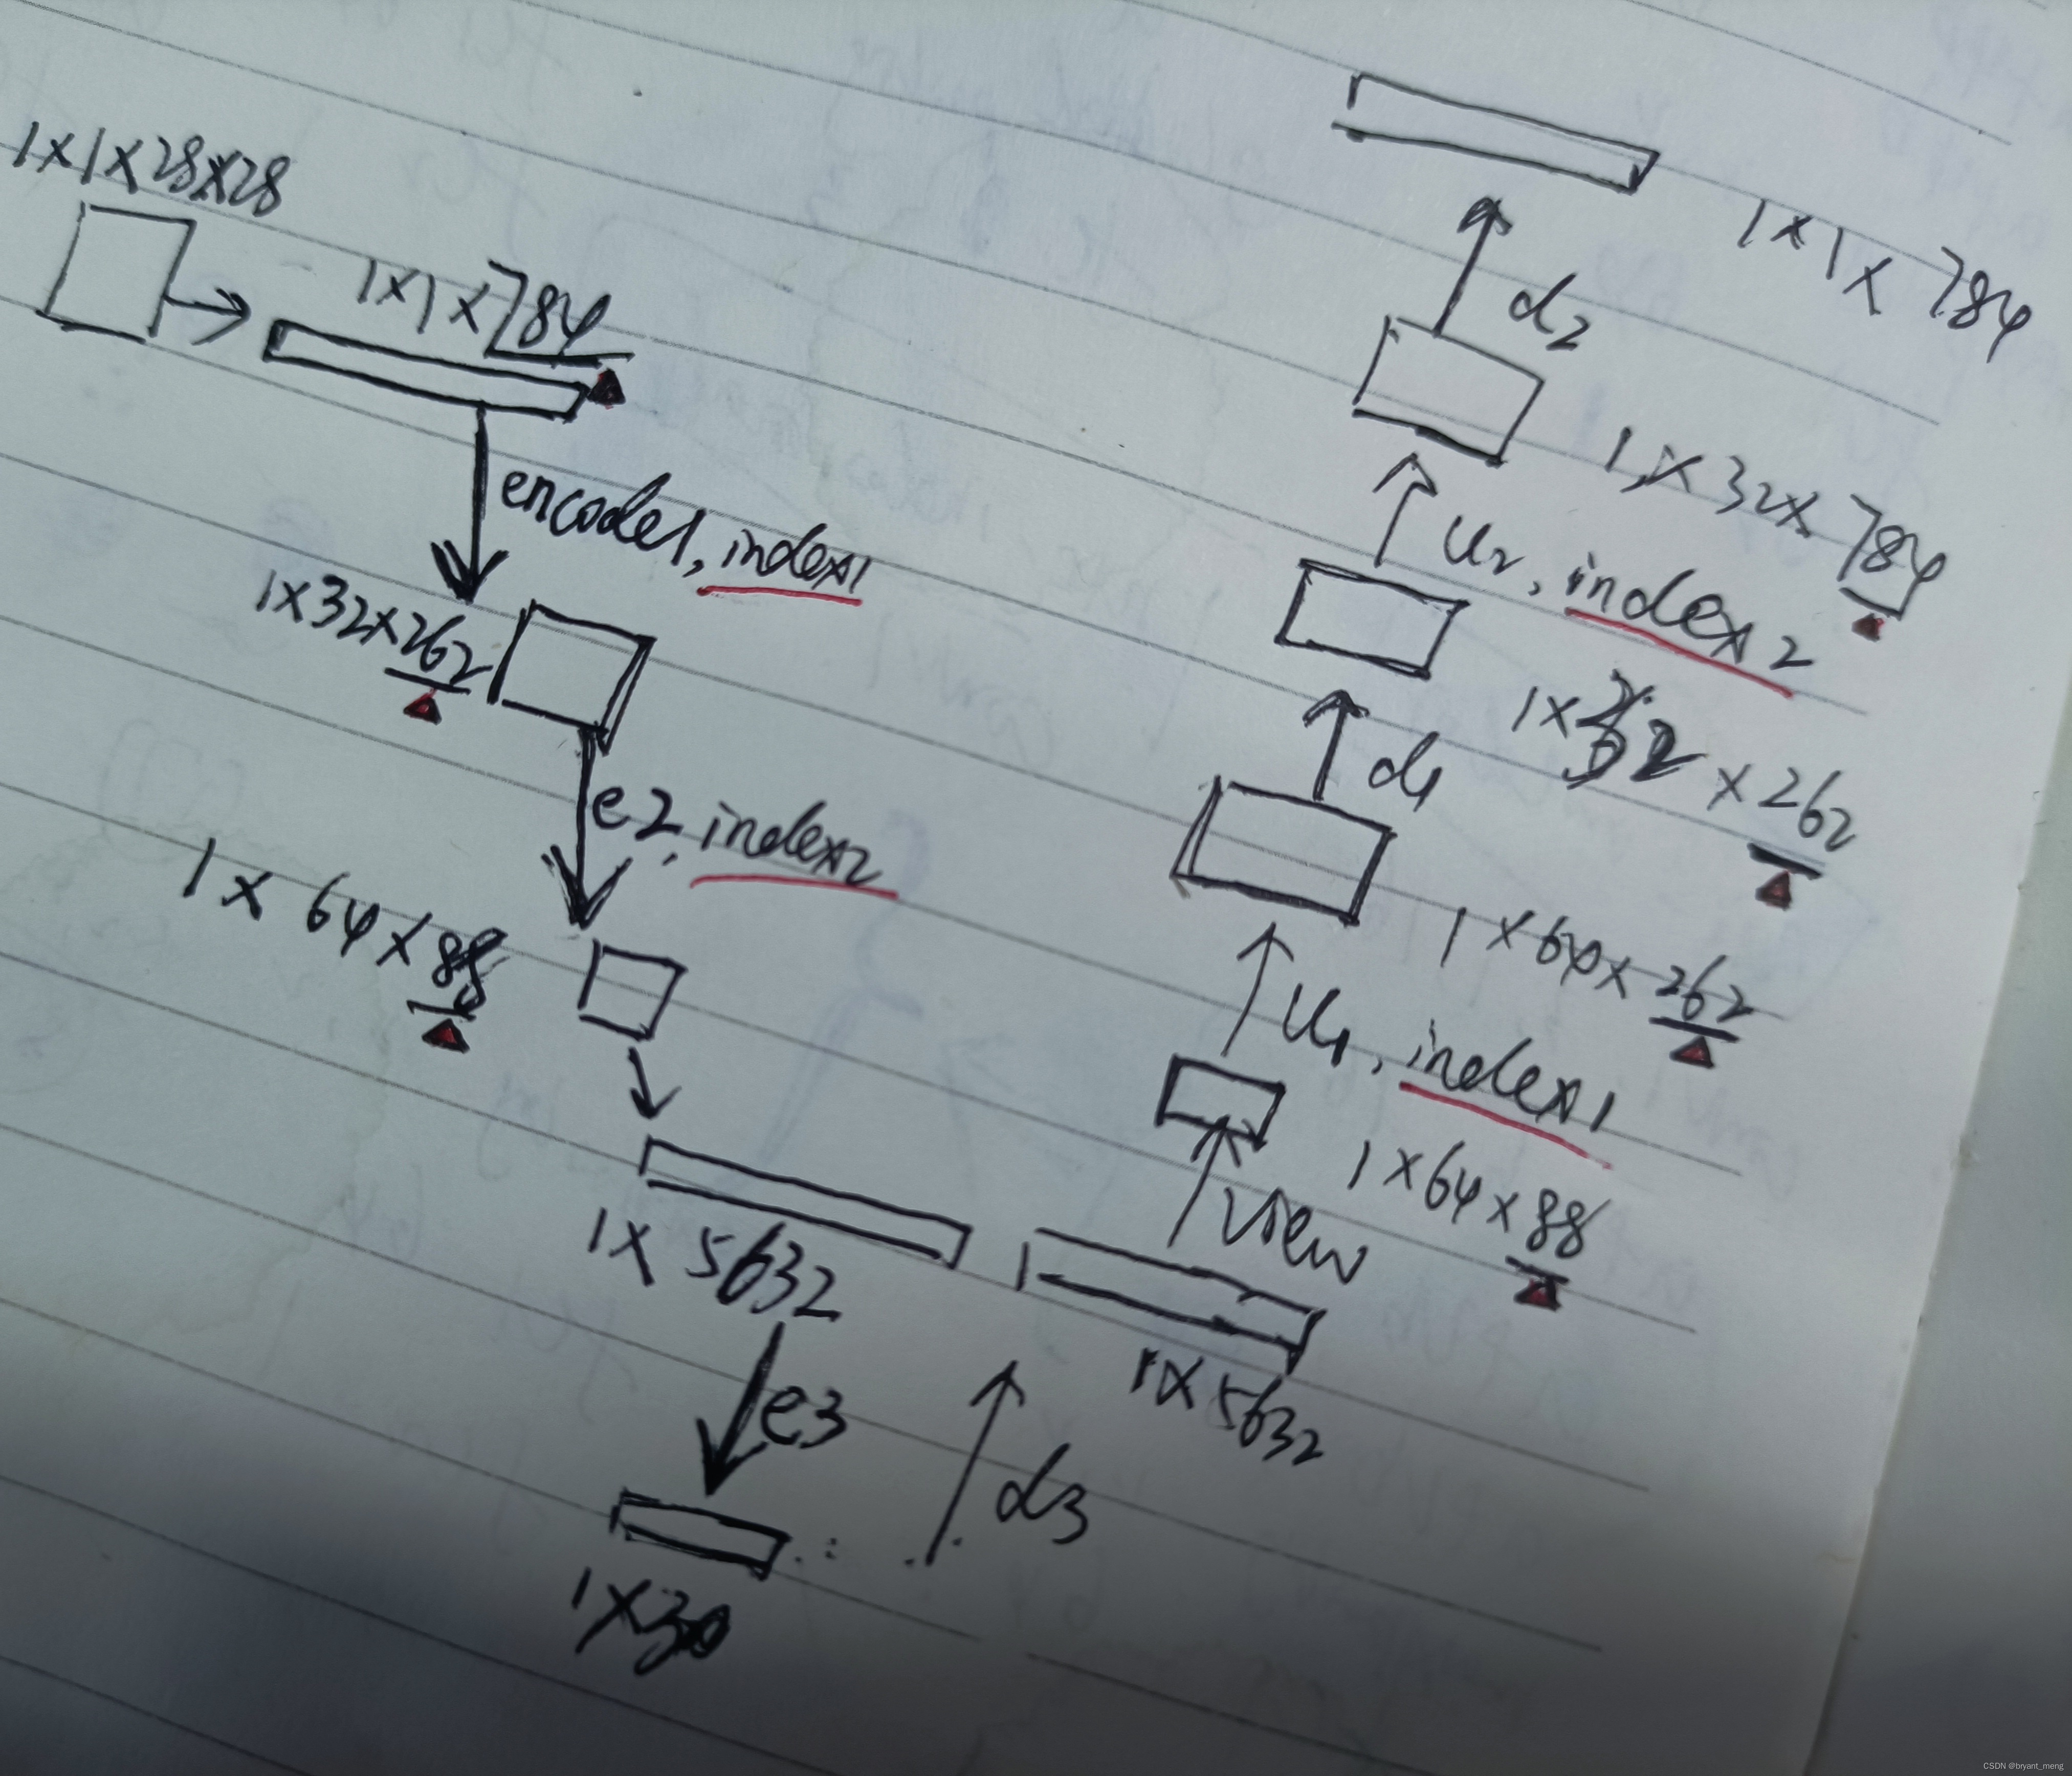 1x1x28x28
1x1x784
encode1, index1
1x32x262
e2, index2
1x64x88
1x5632
e3
1x30
d3
1x5632
view
1x64x88
u1, index1
1x64x262
d1
1x32x262
u2, index2
1x32x784
d2
1x1x784
CSDN @bryant_meng